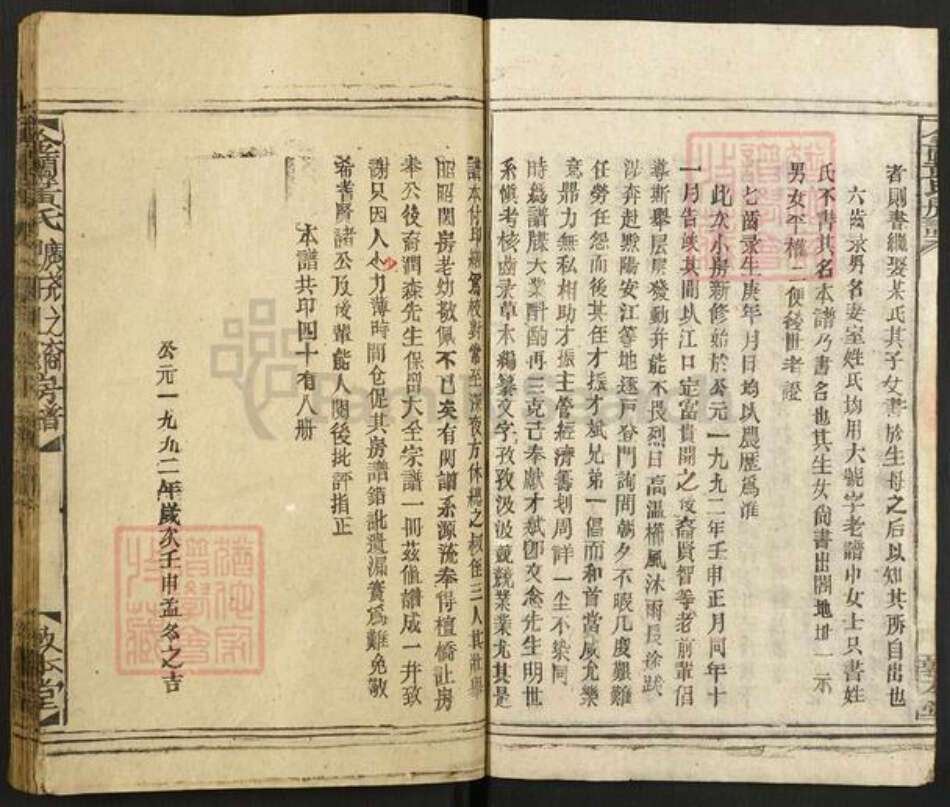 者則書繼娶某氏其子女書於生母之后以知其所自出也
六齒录男名妻室姓氏均用大號字老譜中女士只書姓
氏不書其名本譜乃書名也其生女尙書出閣地址一示
男女平權二便後世者證
七齒录生庚年月日均以農歷爲准
此次小房新修始於公元一九九二年壬申正月同年十
一月告竣其間以江口定富貴開之後裔賢智等老前輩倡
導斯舉層層發動并能不畏烈日高温櫛風沐雨長途跋
涉奔赴黔陽安江等地逐戶登門詢問朝夕不暇几度艱難
任勞任怨而後其侄才振才斌兄弟一倡而和首當咸允樂
意鼎力無私相助才振主管經濟籌划周詳一尘不染同
時爲譜牒大業酌酌再三克己奉獻才斌卽文念先生明世
系愼考核齒录草木編纂文字孜孜汲汲兢兢業業尤其是
譜本付印繕寫校對常至深夜方休楊之叔侄三人其壯舉
昭昭閤房老幼敬佩不已矣有関譜系源流奉得檀橋让房
奉公後裔潤森先生保留大全宗譜一冊茲値譜成一并致
謝只因人少力薄時間仓促其房譜錯訛遺漏實爲難免敬
希者賢諸公及後輩能人閱後批評指正
本譜共印四十有八册
公元一九九二年歲次壬申孟冬之吉
敦本堂